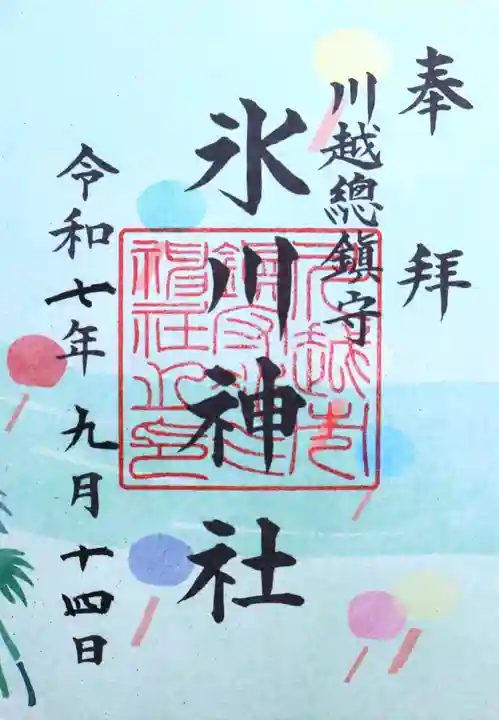 奉拝
川越總鎮守
氷川神社
令和七年九月十四日